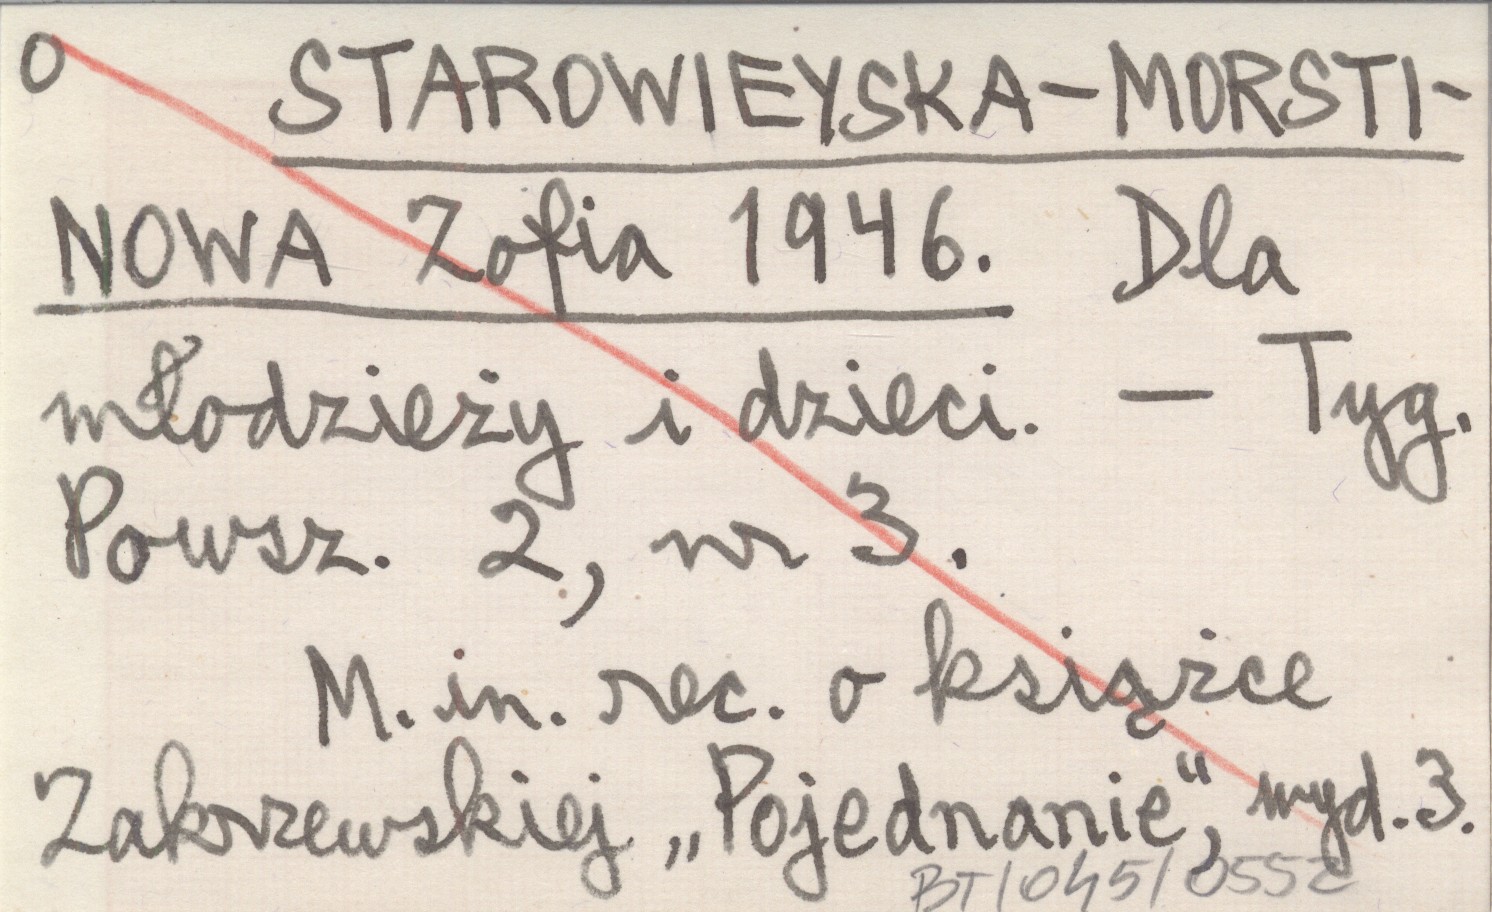 o STAROWIEYSKA-MORSTI-
NOWA Zofia 1946. Dla
młodzieży i dzieci. — Tyg.
Powsz. 2, nr 3.
M. in. rec. o książce
Zakrzewskiej „Pojednanie“, wyd. 3.
BT/045/0552